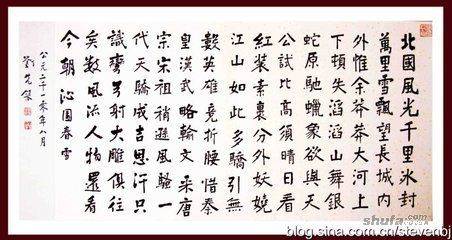 北國風光千里冰封
萬里雪飄望長城內
外惟余莽莽大河上
下頓失滔滔山舞銀
蛇原馳蠟象欲與天
公試比高須晴日看
紅裝素裹分外妖嬈
江山如此多嬌引無
數英雄競折腰惜秦
皇漢武略輸文采唐
宗宋祖稍遜風騷一
代天驕成吉思汗只
識彎弓射大雕俱往
矣數風流人物還看
今朝 沁園春雪
公元二千一零年八月
劉
blog.sina.com.cn/stevenbj